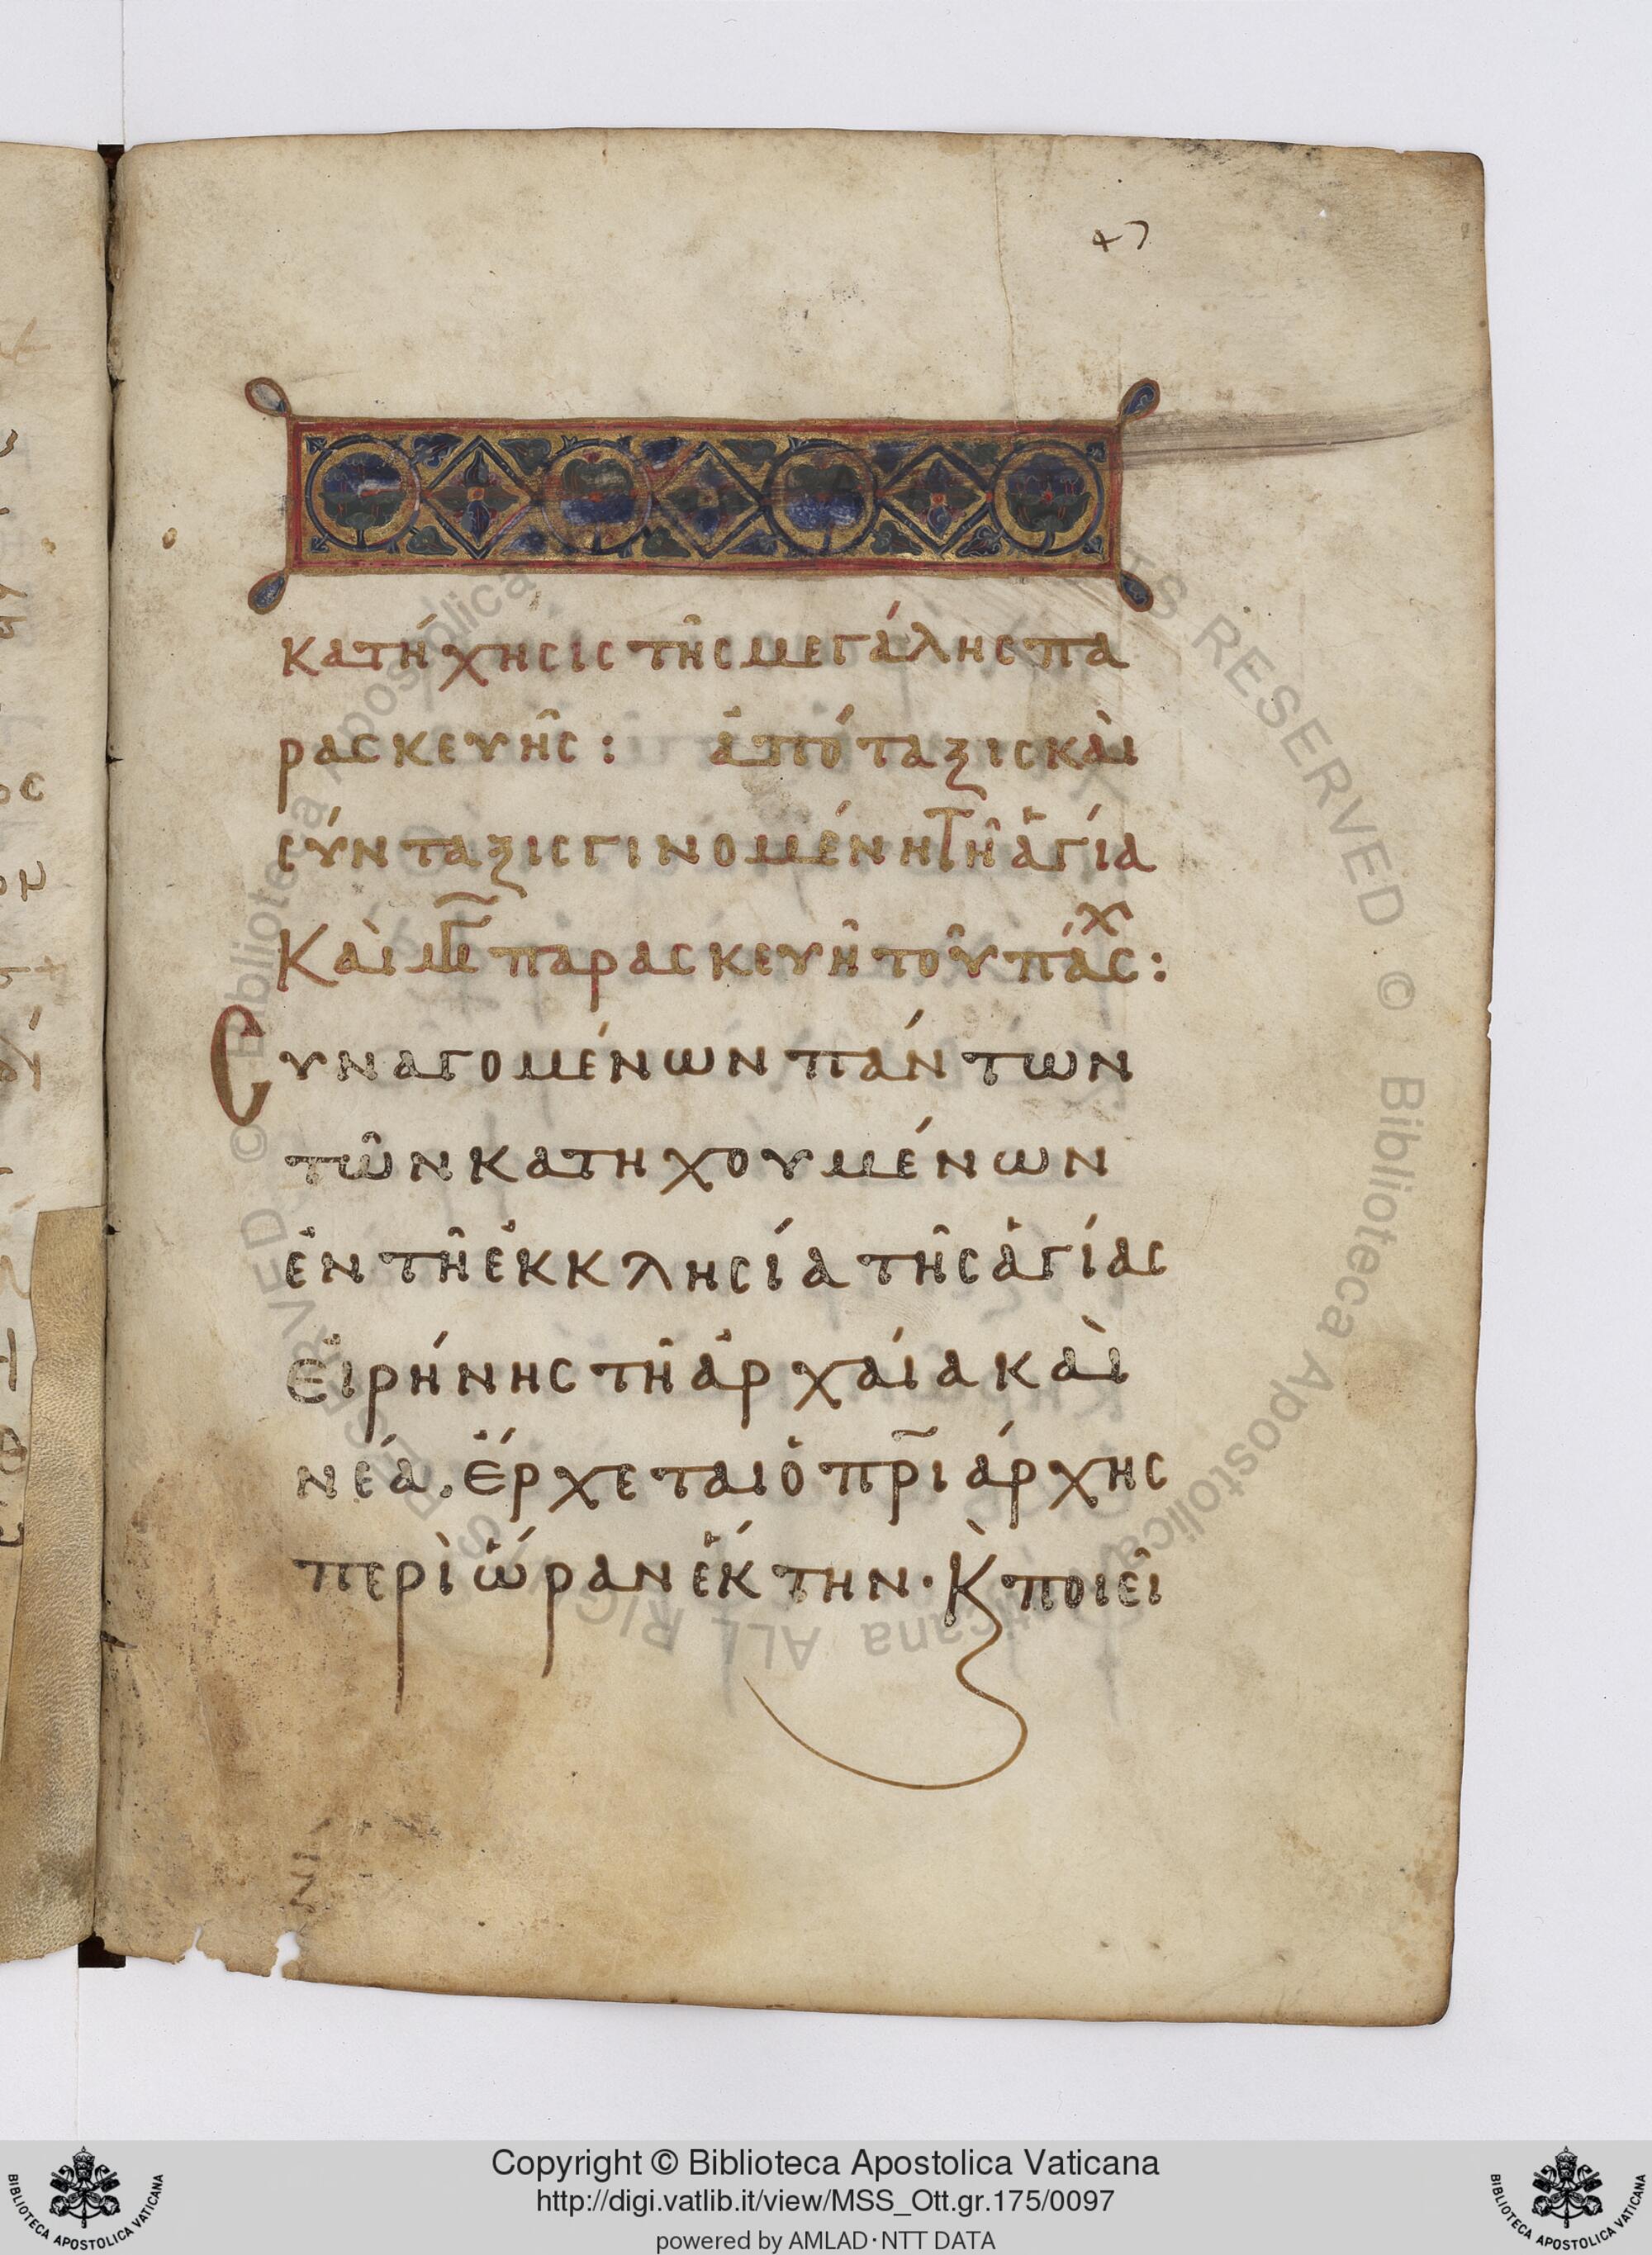 47
κατήχησις τῆς μεγάλης πα
ρασκευῆς : ἀπόταξις καὶ
σύνταξις γινομένη τῆ ἁγία
Καὶ μγ̅ παρασκευῆ τοῦ πάσχ :
Συναγομένων πάντων
τῶν κατηχουμένων
ἐν τῆ ἐκκλησία τῆς ἁγίας
Εἰρήνης τῆ ἀρχαία καὶ
νέα. Ἔρχεται ὁ πρ̅ιάρχης
περὶ ὥραν ἕκτην · Κ̀ ποιεῖ
© Biblioteca Apostolica Vaticana ALL RIGHTS RESERVED © Biblioteca Apostolica Vaticana ALL RIGHTS RESERVED
Copyright © Biblioteca Apostolica Vaticana
http://digi.vatlib.it/view/MSS_Ott.gr.175/0097
powered by AMLAD·NTT DATA
BIBLIOTECA APOSTOLICA VATICANA
BIBLIOTECA APOSTOLICA VATICANA